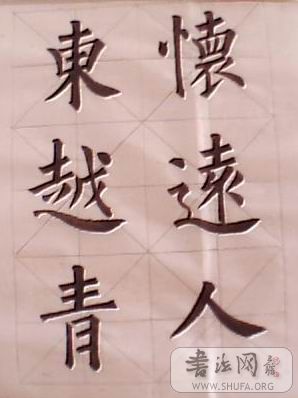 懷遠人
東越青
书法网
WWW.SHUFA.ORG